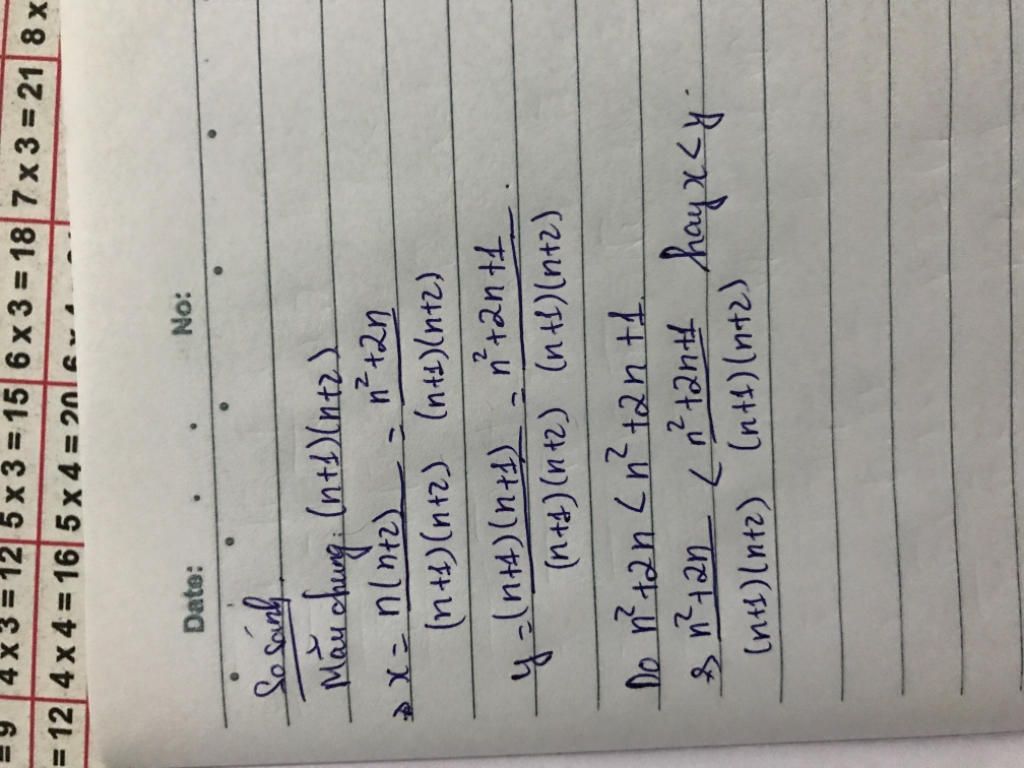 = 9 4 x 3 = 12 5 x 3 = 15 6 x 3 = 18 7 x 3 = 21 8 x
= 12 4 x 4 = 16 5 x 4 = 20
Date: No:
So sánh
Mẫu chung: (n+1)(n+2)
x = n(n+2) / (n+1)(n+2) = n²+2n / (n+1)(n+2)
y = (n+1)(n+1) / (n+1)(n+2) = n²+2n+1 / (n+1)(n+2).
Do n²+2n < n²+2n+1
n²+2n / (n+1)(n+2) < n²+2n+1 / (n+1)(n+2) hay x < y.